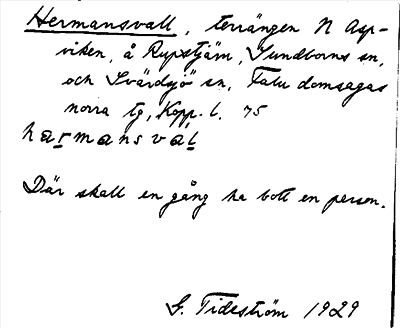 Hermansvall, terrängen N Asp-
viken, å Rupstjärn, Sundborns sn,
och Svärdsjö sn, Falu domsagas
norra tg, Kopp. l. 75
harmansväl
Där skall en gång ha bott en person.
G. Tideström 1929